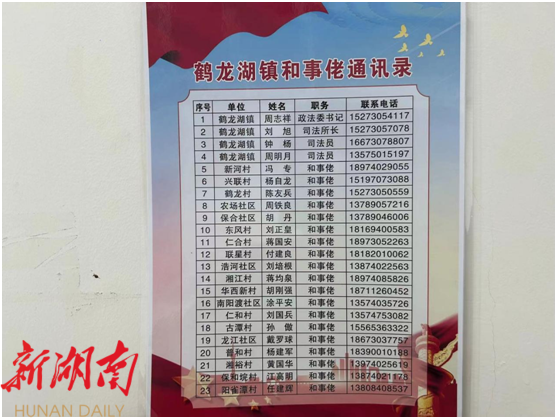 鹤龙湖镇和事佬通讯录
序号 单位 姓名 职务 联系电话
1 鹤龙湖镇 周志祥 政法委书记 15273054117
2 鹤龙湖镇 刘旭 司法所长 15273057078
3 鹤龙湖镇 钟杨 司法员 16673078807
4 鹤龙湖镇 周明月 司法员 13575015197
5 新河村 冯专 和事佬 18974029055
6 兴联村 杨自龙 和事佬 15197073088
7 鹤龙村 陈友兵 和事佬 15273050559
8 农场社区 周铁良 和事佬 13789057216
9 保合社区 胡丹 和事佬 13789046006
10 东风村 刘正皇 和事佬 18169400583
11 仁合村 蒋国安 和事佬 18973052263
12 联星村 付建良 和事佬 18182010062
13 浩河社区 刘培根 和事佬 13874022563
14 湘江村 蒋均泉 和事佬 18974085826
15 华西新村 胡刚强 和事佬 18711260452
16 南阳渡社区 涂平安 和事佬 13574035726
17 仁和村 刘国兵 和事佬 13574753082
18 古潭村 孙傲 和事佬 15565363322
19 龙江社区 戴罗球 和事佬 18673037757
20 普和村 杨建军 和事佬 18390010188
21 湘裕村 黄国华 和事佬 13974025619
22 保和垸村 江亮明 和事佬 13874021178
23 阳雀潭村 任建辉 和事佬 13808408537
新湖南
HUNAN DAILY